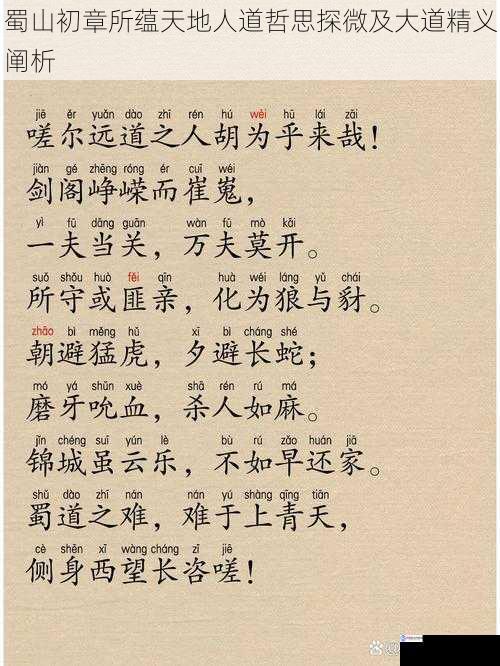 蜀山初章所蕴天地人道哲思探微及大道精义
阐析
jiē ěr yuǎn dào zhī rén hú wèi hū lái zāi
嗟尔远道之人胡为乎来哉!
jiàn gé zhēng róng ér cuī wéi
剑阁峥嵘而崔嵬,
yì fū dāng guān wàn fū mò kāi
一夫当关,万夫莫开。
suǒ shǒu huò fěi qīn huà wéi láng yǔ chái
所守或匪亲,化为狼与豺。
zhāo bì měng hǔ xī bì cháng shé
朝避猛虎,夕避长蛇;
mó yá shǔn xuè shā rén rú má
磨牙吮血,杀人如麻。
jǐn chéng suī yún lè bù rú zǎo huán jiā
锦城虽云乐,不如早还家。
shǔ dào zhī nán nán yú shàng qīng tiān
蜀道之难,难于上青天,
cè shēn xī wàng cháng zī jiē
侧身西望长咨嗟!